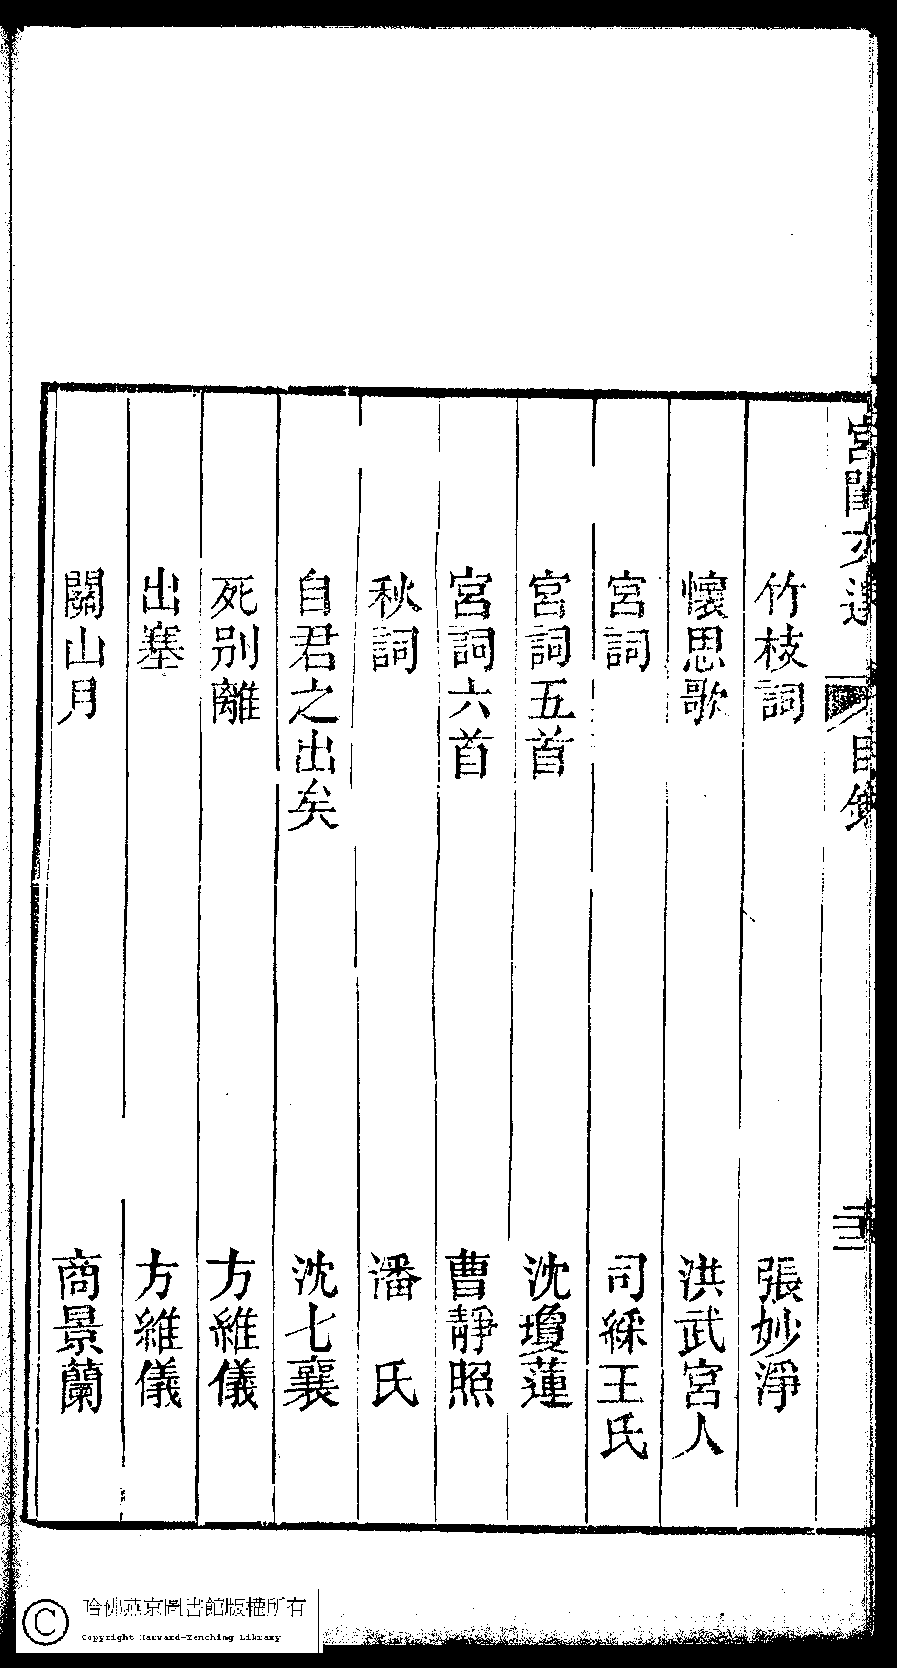 宮閨文選
目錄
竹枝詞 張妙淨
懷思歌 洪武宮人
宮詞 司綵王氏
宮詞五首 沈瓊蓮
宮詞六首 曹靜照
秋詞 潘氏
自君之出矣 沈七襄
死別離 方維儀
出塞 方維儀
關山月 商景蘭
哈佛燕京圖書館版權所有
Copyright Harvard-Yenching Library